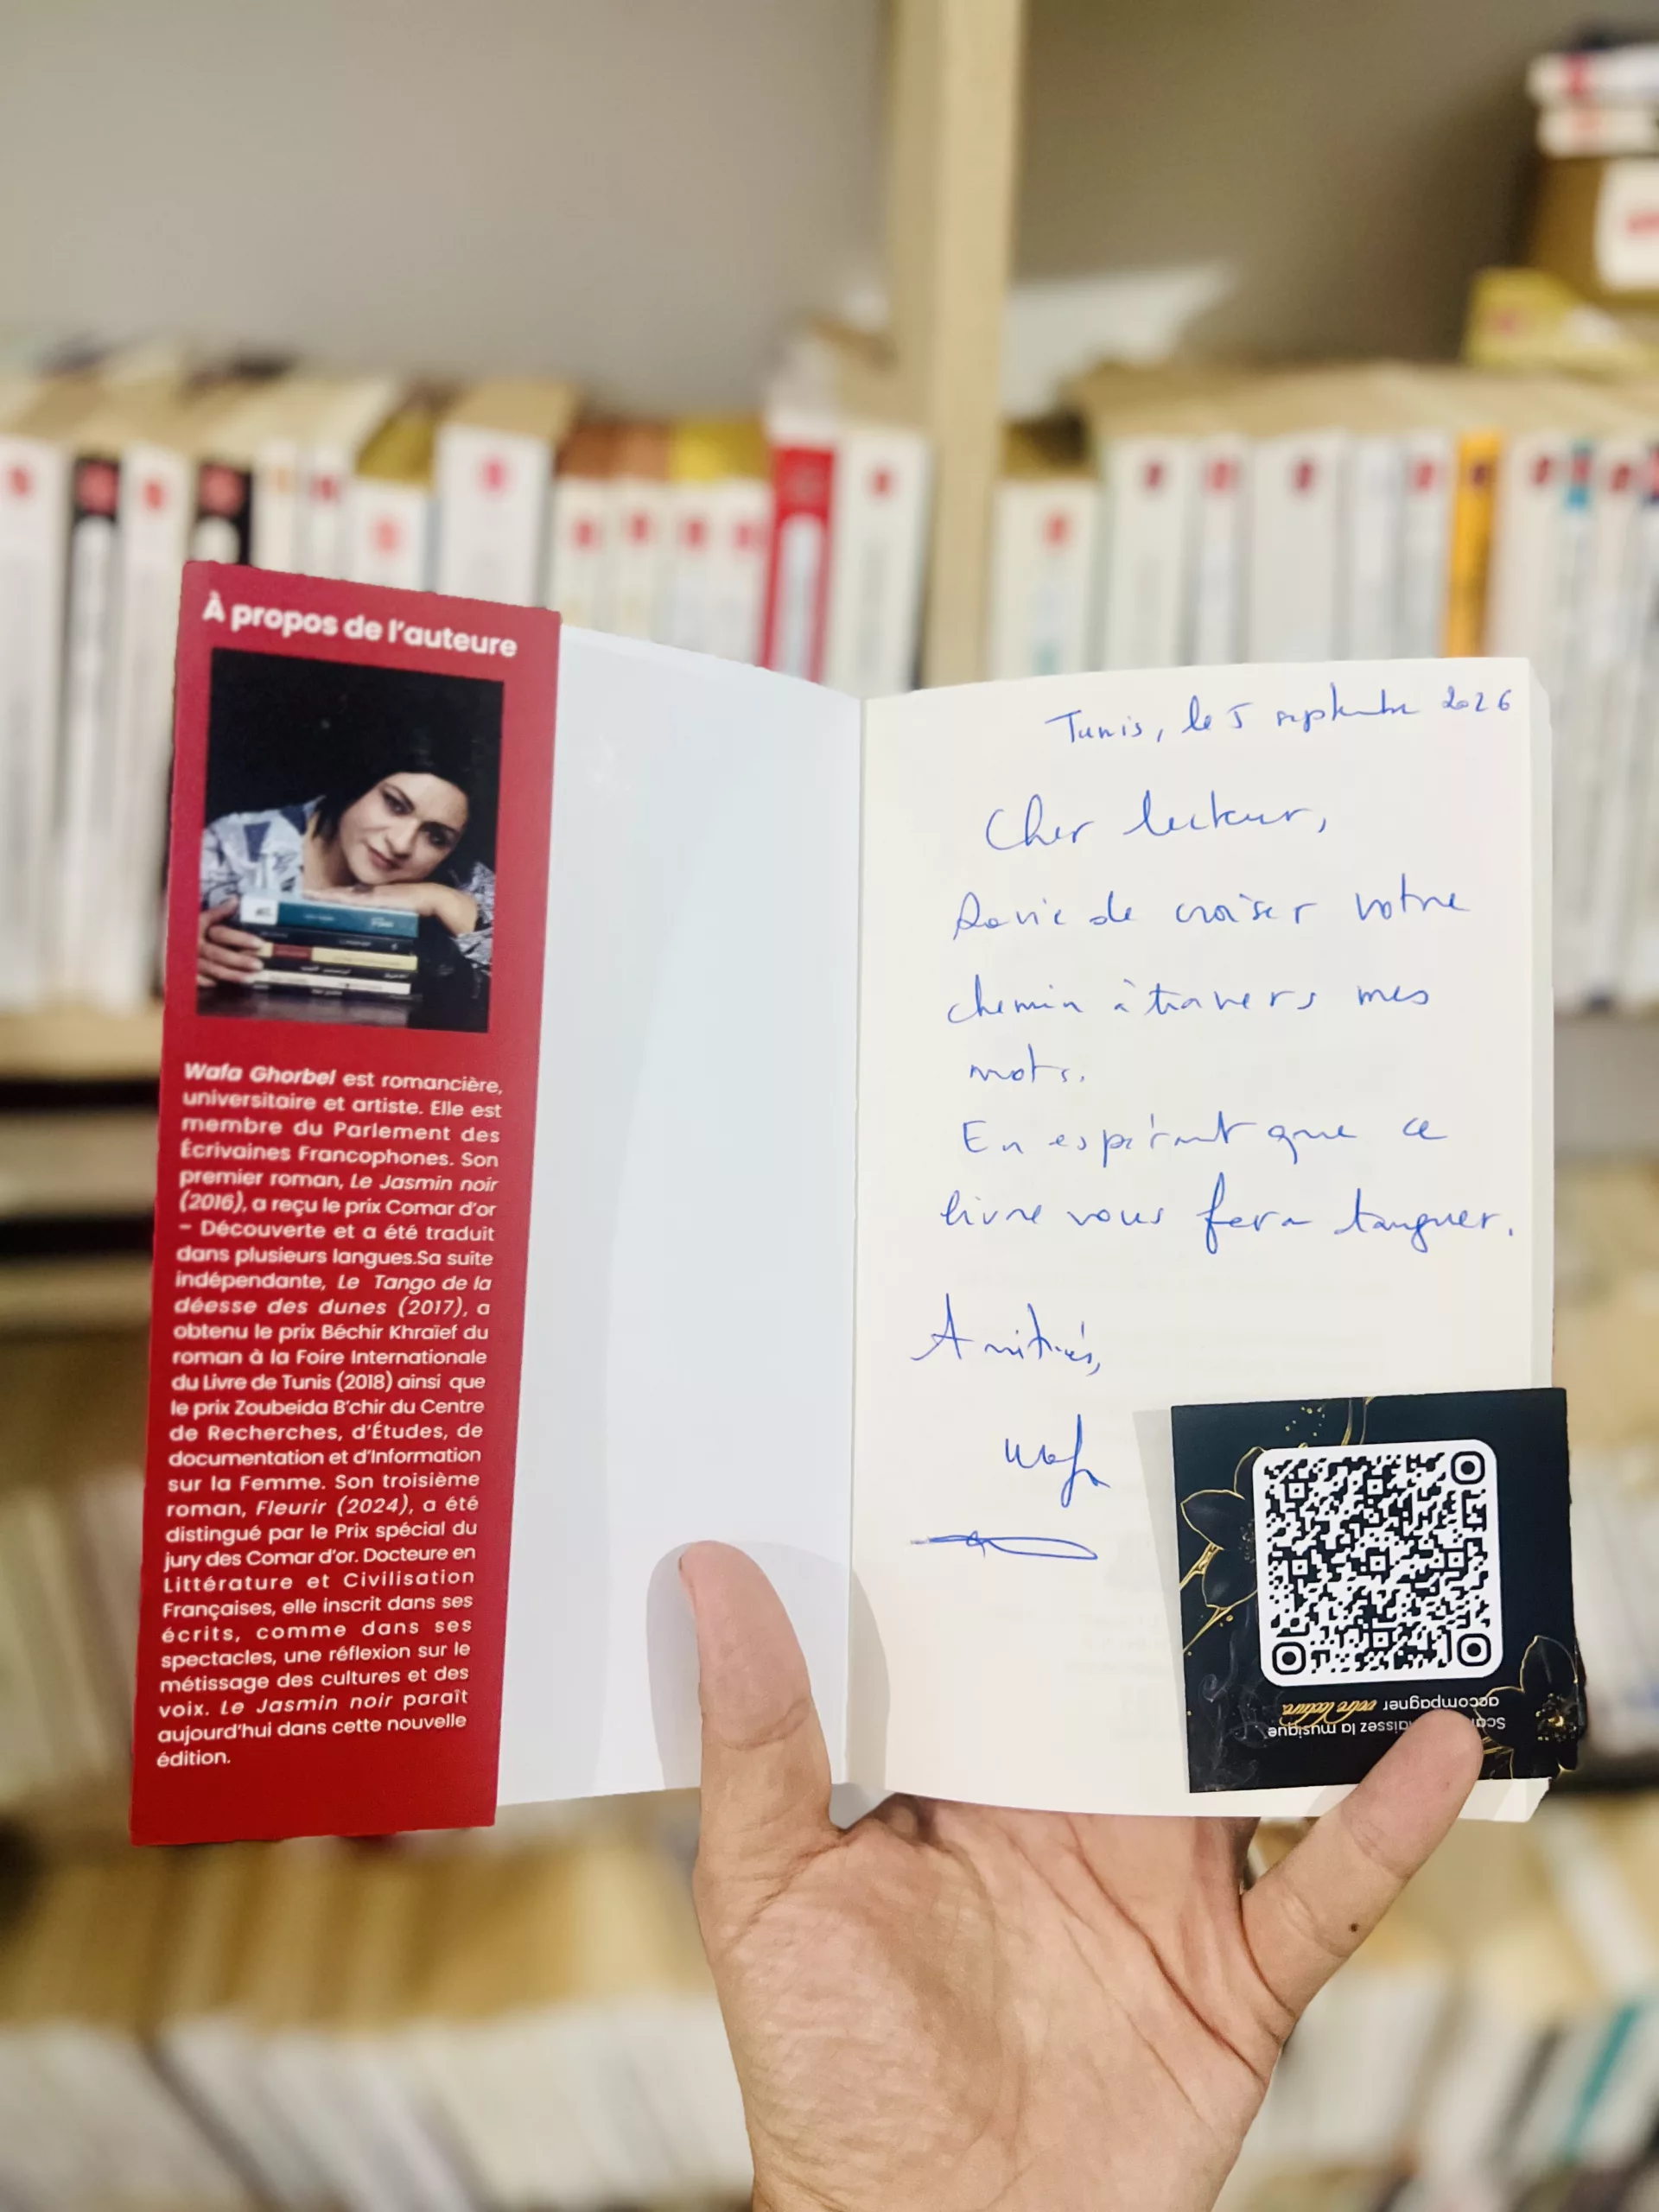 À propos de l'auteure
Wafa Ghorbel est romancière,
universitaire et artiste. Elle est
membre du Parlement des
Écrivaines Francophones. Son
premier roman, Le Jasmin noir
(2016), a reçu le prix Comar d'or
– Découverte et a été traduit
dans plusieurs langues.Sa suite
indépendante, Le Tango de la
déesse des dunes (2017), a
obtenu le prix Béchir Khraïef du
roman à la Foire Internationale
du Livre de Tunis (2018) ainsi que
le prix Zoubeida B'chir du Centre
de Recherches, d'Études, de
documentation et d'Information
sur la Femme. Son troisième
roman, Fleurir (2024), a été
distingué par le Prix spécial du
jury des Comar d'or. Docteure en
Littérature et Civilisation
Françaises, elle inscrit dans ses
écrits, comme dans ses
spectacles, une réflexion sur le
métissage des cultures et des
voix. Le Jasmin noir paraît
aujourd'hui dans cette nouvelle
édition.
Tunis, le 5 septembre 2026
Cher lecteur,
Ravie de croiser votre
chemin à travers mes
mots.
En espérant que ce
livre vous fera tanguer.
Amitiés,
Wafa
la musique
accompagner votre lecture